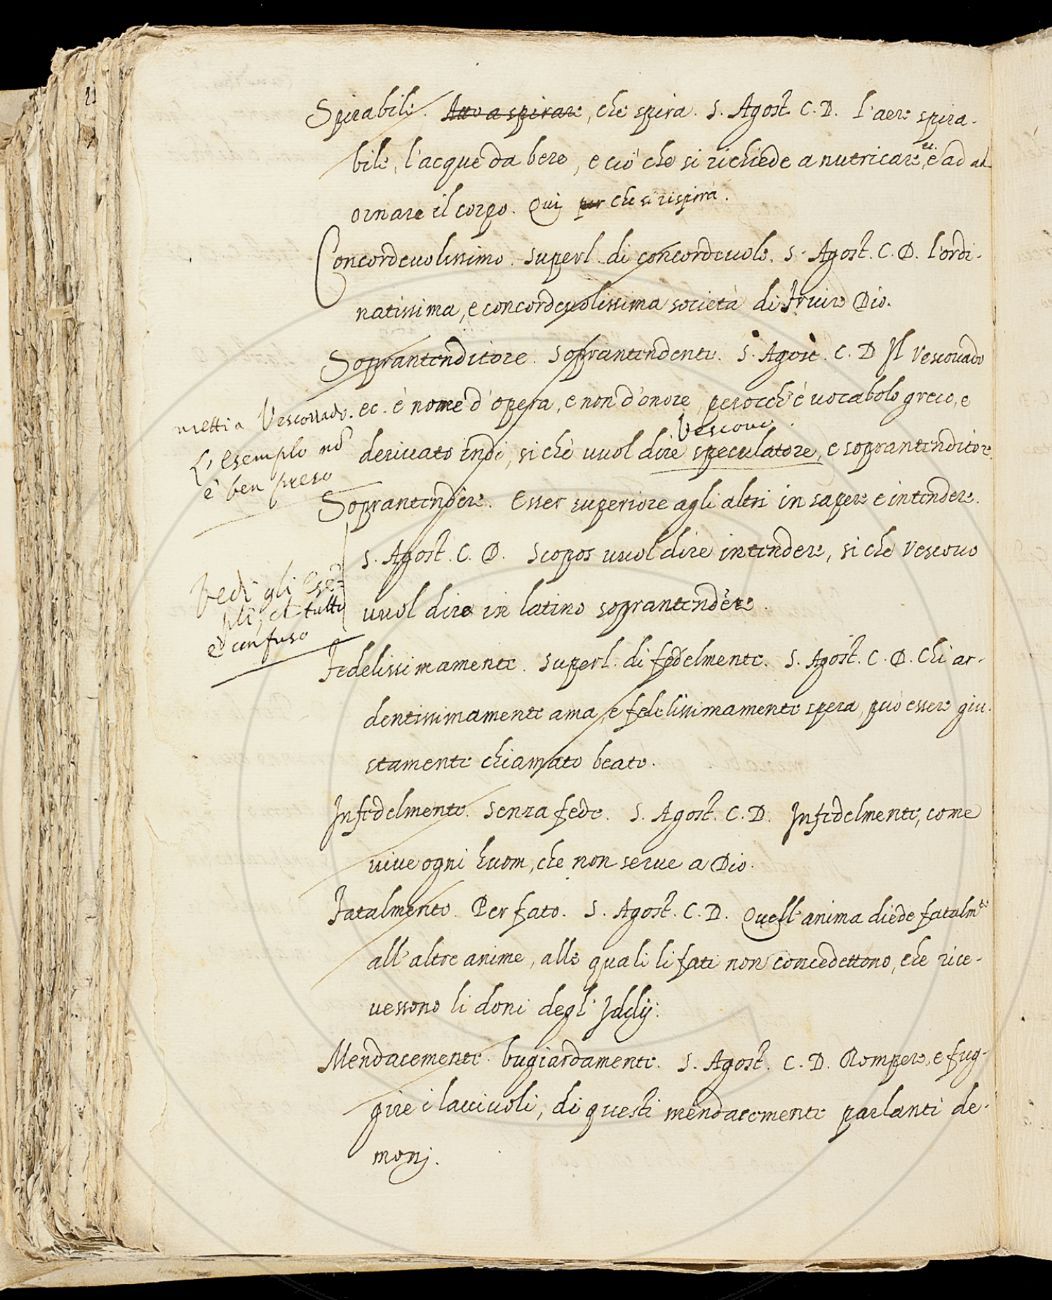 Spirabile. Atto a spirare, che spira. S. Agost. C. D. l'aere spira-
bile, l'acque da bere, e ciò che si richiede a nutricare, e ad ad
ornare il corpo. Qui per che si rispira.
Concordevolissimo. Superl. di concordevole. S. Agost. C. D. l'ordi-
natissima, e concordevolissima società di fruire Dio.
Soprantenditore. Soprantendente. S. Agost. C. D. Il Vescovado
ec. è nome d'opera, e non d'onore, perocch'è vocabolo greco, e
Vescovo
derivato indi, si chè vuol dire speculatore, e soprantenditore
metti a Vescovado.
L'esemplo nō
è ben preso
Soprantendere. Esser superiore agli altri in sapere e intendere.
S. Agost. C. D. Scopos vuol dire intendere, si che Vescovo
vuol dire in latino soprantendere.
Vedi gli Esē-
pli, et tutto
è confuso
Fedelissimamente. Superl. di fedelmente. S. Agost. C. D. Chi ar-
dentissimamente ama, e fedelissimamente spera, può essere giu-
stamente chiamato beato.
Infedelmente. Senza fede. S. Agost. C. D. Infedelmente, come
vive ogni huom, che non serve a Dio.
Fatalmente. Per fato. S. Agost. C. D. Quell'anima diede fatalmte
all'altre anime, alle quali li fati non concedettono, che rice-
vessono li doni degl'Idelij.
Mendacemente. bugiardamente. S. Agost. C. D. Rompere, e fug-
gire i lacciuoli, di questi mendacemente parlanti de-
monj.